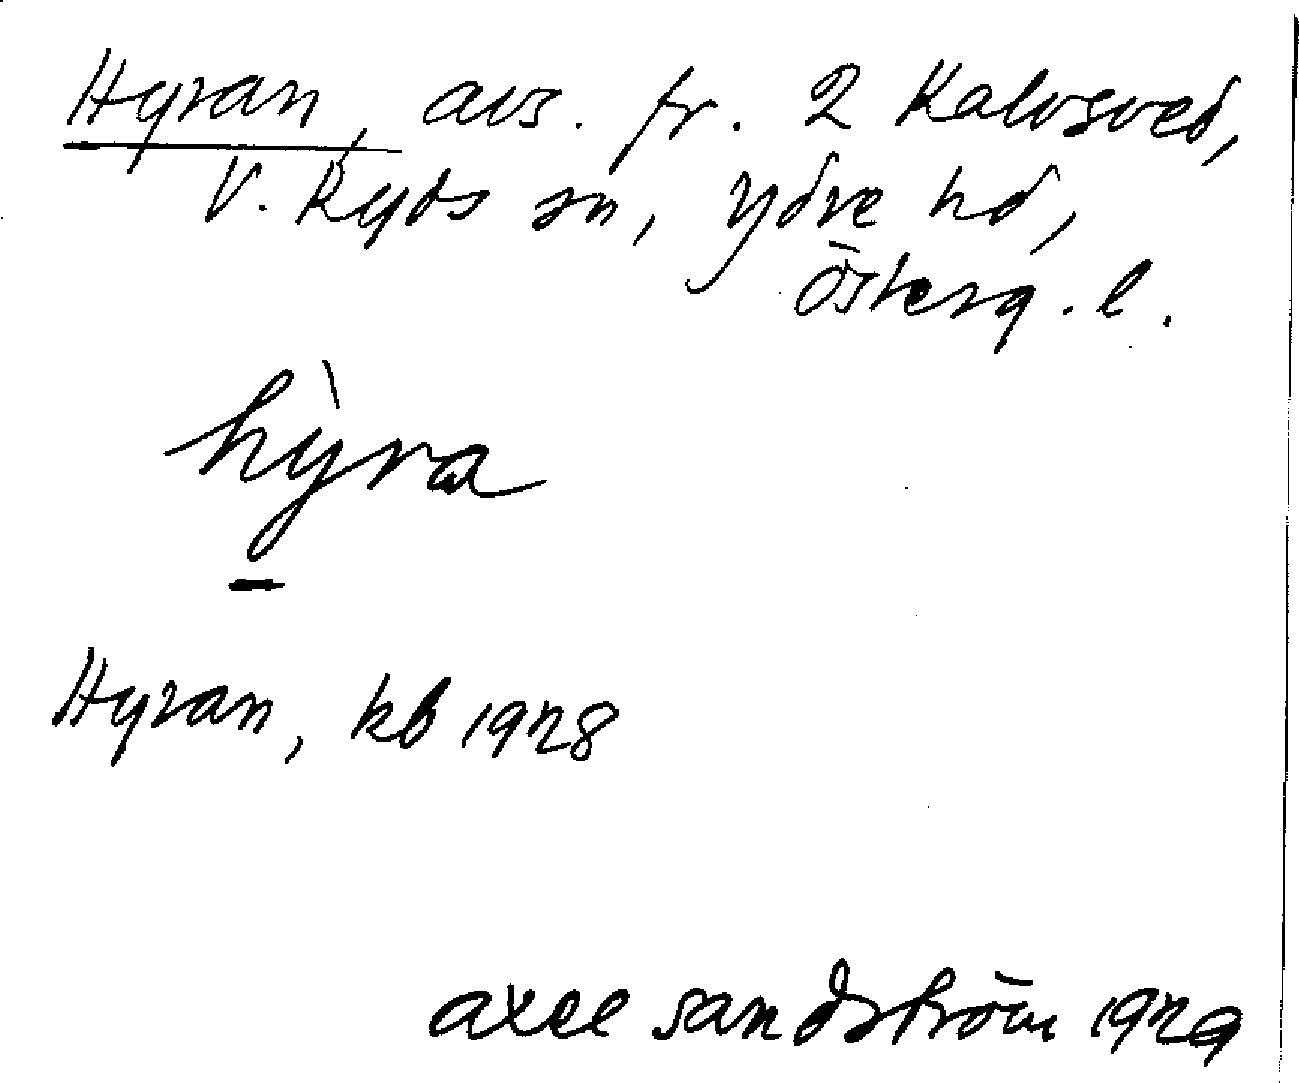 Hyran, avs. fr. 2 Kalvsved,
V. Ryds sn, Ydre hd,
Österg. l.
hỳ̱ra
Hyran, kb 1928
Axel Sandström 1929